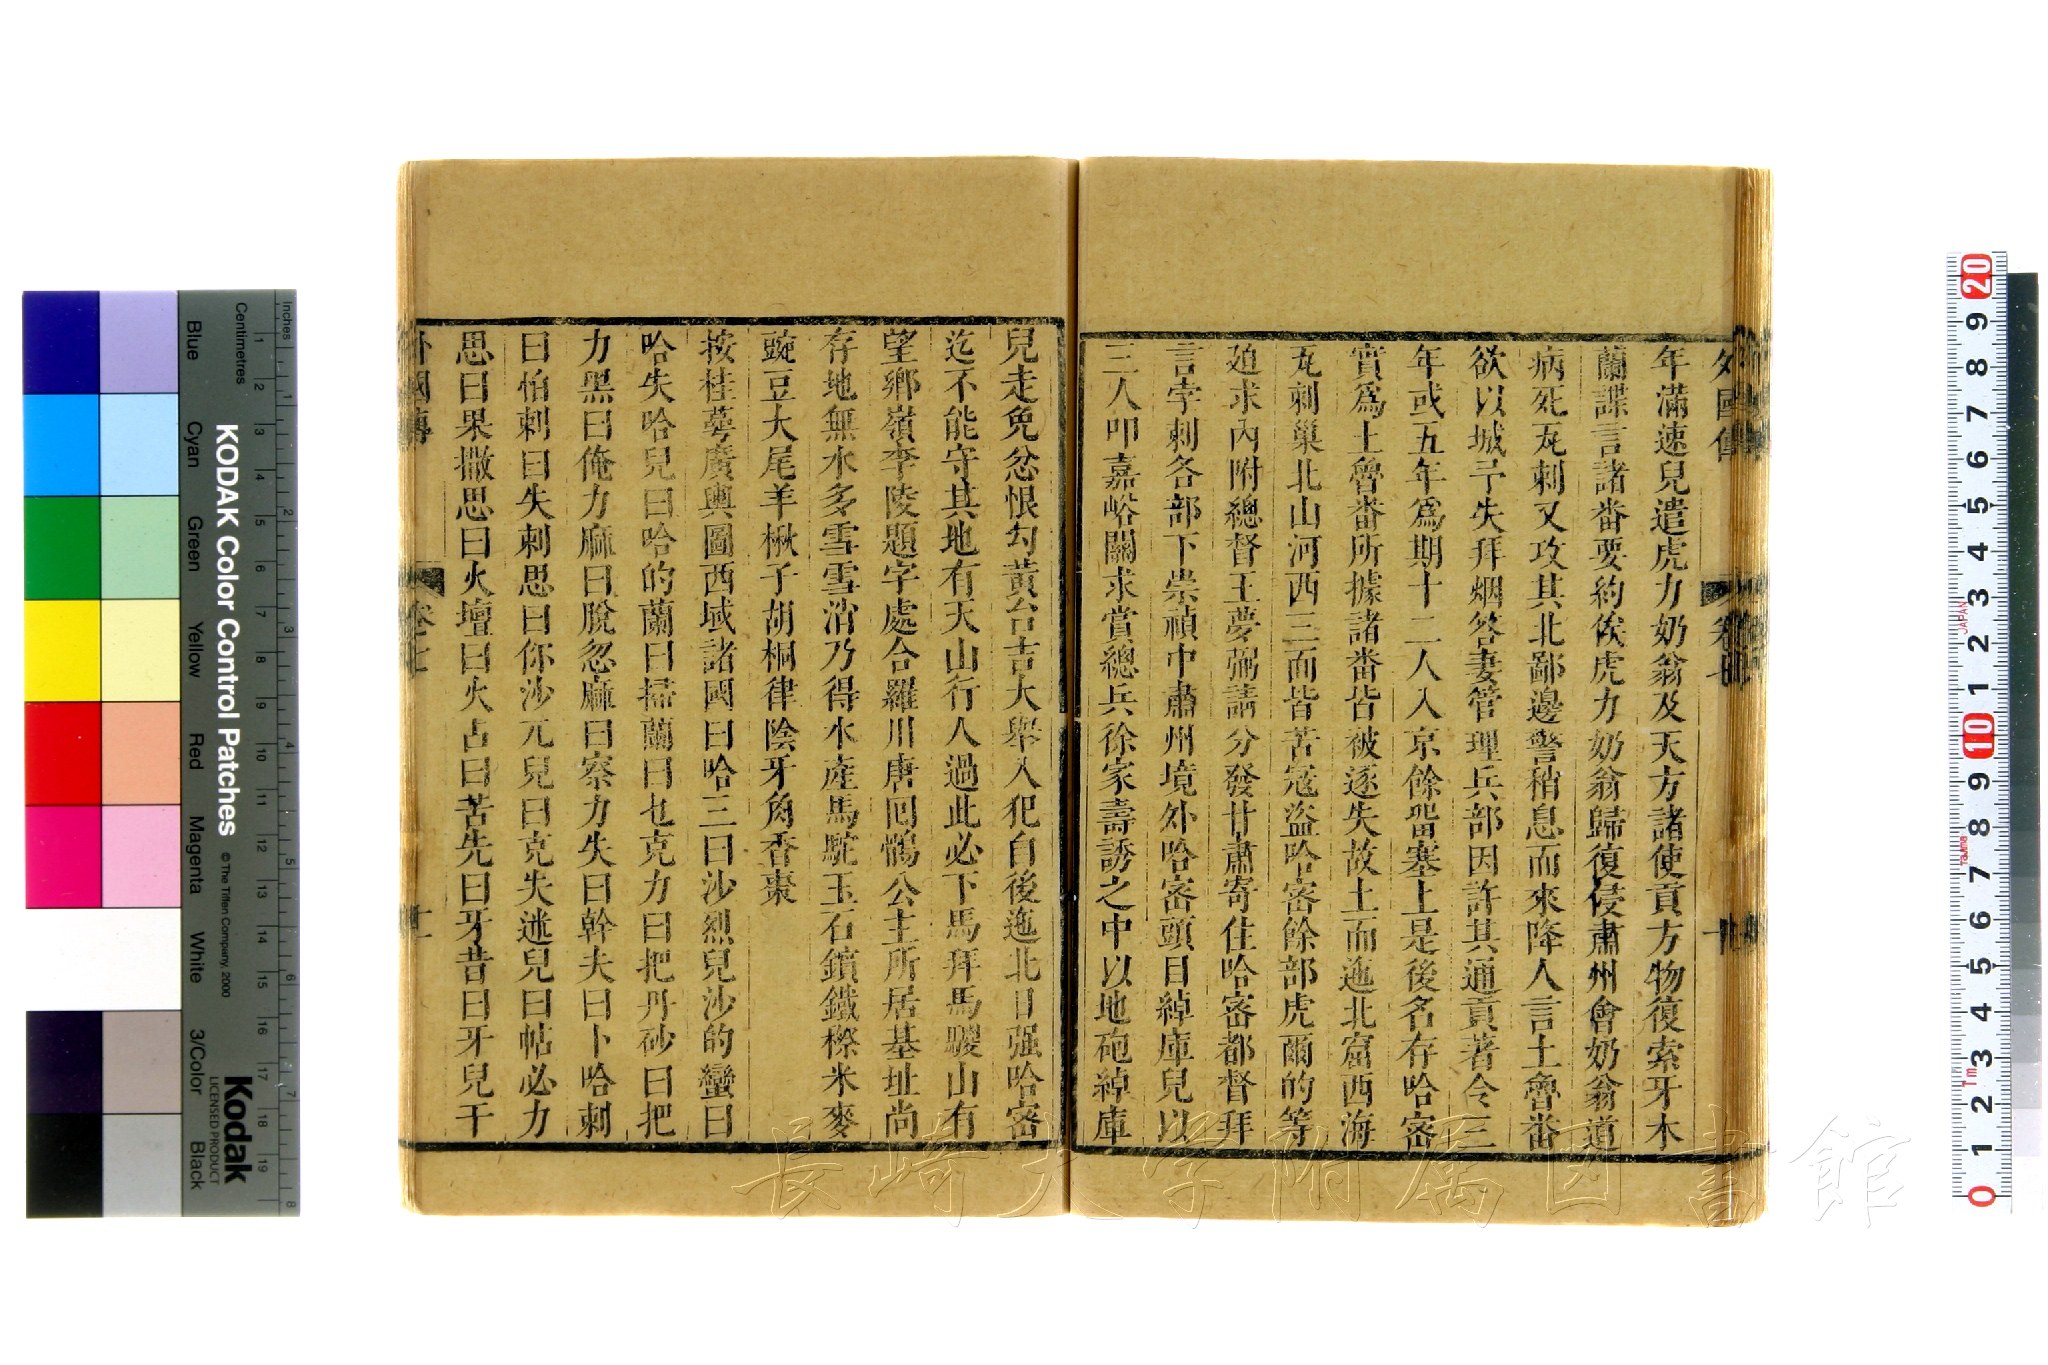 外國傳 卷七 十
年滿速兒遣虎力奶翁及天方諸使貢方物復索牙木
蘭諜言諸番要約俟虎力奶翁歸復侵肅州會奶翁道
病死瓦剌又攻其北鄙邊警稍息而來降人言土魯番
欲以城予失拜烟答妻管理兵部因許其通貢著令三
年或五年爲期十二人入京餘畱塞上是後名存哈密
實爲土魯番所據諸番皆被逐失故土而迤北窟西海
瓦剌巢北山河西三面皆苦寇盜哈密餘部虎爾的等
廹求內附總督王夢弼請分發甘肅寄住哈密都督拜
言孛剌各部下崇禎中肅州境外哈密頭目綽庫兒以
三人叩嘉峪關求賞總兵徐家壽誘之中以地砲綽庫
兒走免忿恨勾黃台吉大舉入犯自後迤北日强哈密
迄不能守其地有天山行人過此必下馬拜馬騣山有
望鄉嶺李陵題字處合羅川唐回鶻公主所居基址尚
存地無水多雪雪消乃得水產馬駝玉石鑌鐵穄米麥
豌豆大尾羊楸子胡桐律陰牙角香棗
按桂萼廣輿圖西域諸國曰哈三曰沙烈兒沙的蠻曰
哈失哈兒曰哈的蘭曰掃蘭曰乜克力曰把丹砂曰把
力黑曰俺力麻曰脫忽麻曰察力失曰幹夫曰卜哈剌
曰怕剌曰失剌思曰你沙兀兒曰克失迷兒曰帖必力
思曰果撒思曰火壇曰火占曰苦先曰牙昔曰牙兒干
外國傳 卷七 十一
KODAK Color Control Patches
© The Tiffen Company, 2000
Kodak
LICENSED PRODUCT
Inches
Centimetres
Blue Cyan Green Yellow Red Magenta White 3/Color Black
1 2 3 4 5 6 7 8 9 10 11 12 13 14 15 16 17 18 19
1 2 3 4 5 6 7 8
20 9 8 7 6 5 4 3 2 1 10 9 8 7 6 5 4 3 2 1 0
JAPAN
Tajima
Tm
長崎大学附属図書館